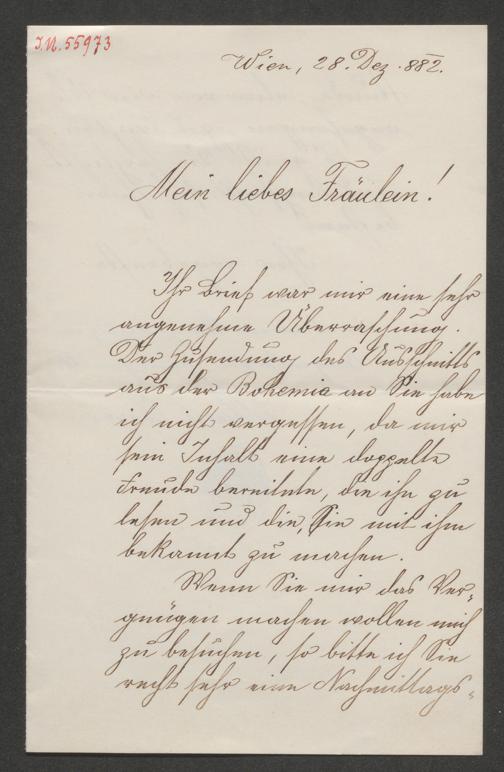 I.N. 55973
Wien, 28. Dez. 882.
Mein liebes Fräulein!
Ihr Brief war mir eine sehr
angenehme Überraschung.
Der Zusendung des Ausschnitts
aus der Bohemia an Sie habe
ich nicht vergessen, da mir
sein Inhalt eine doppelte
Freude bereitete, die ihn zu
lesen und die, Sie mit ihm
bekannt zu machen.
Wenn Sie mir das Ver-
gnügen machen wollen mich
zu besuchen, so bitte ich Sie
recht sehr eine Nachmittags-